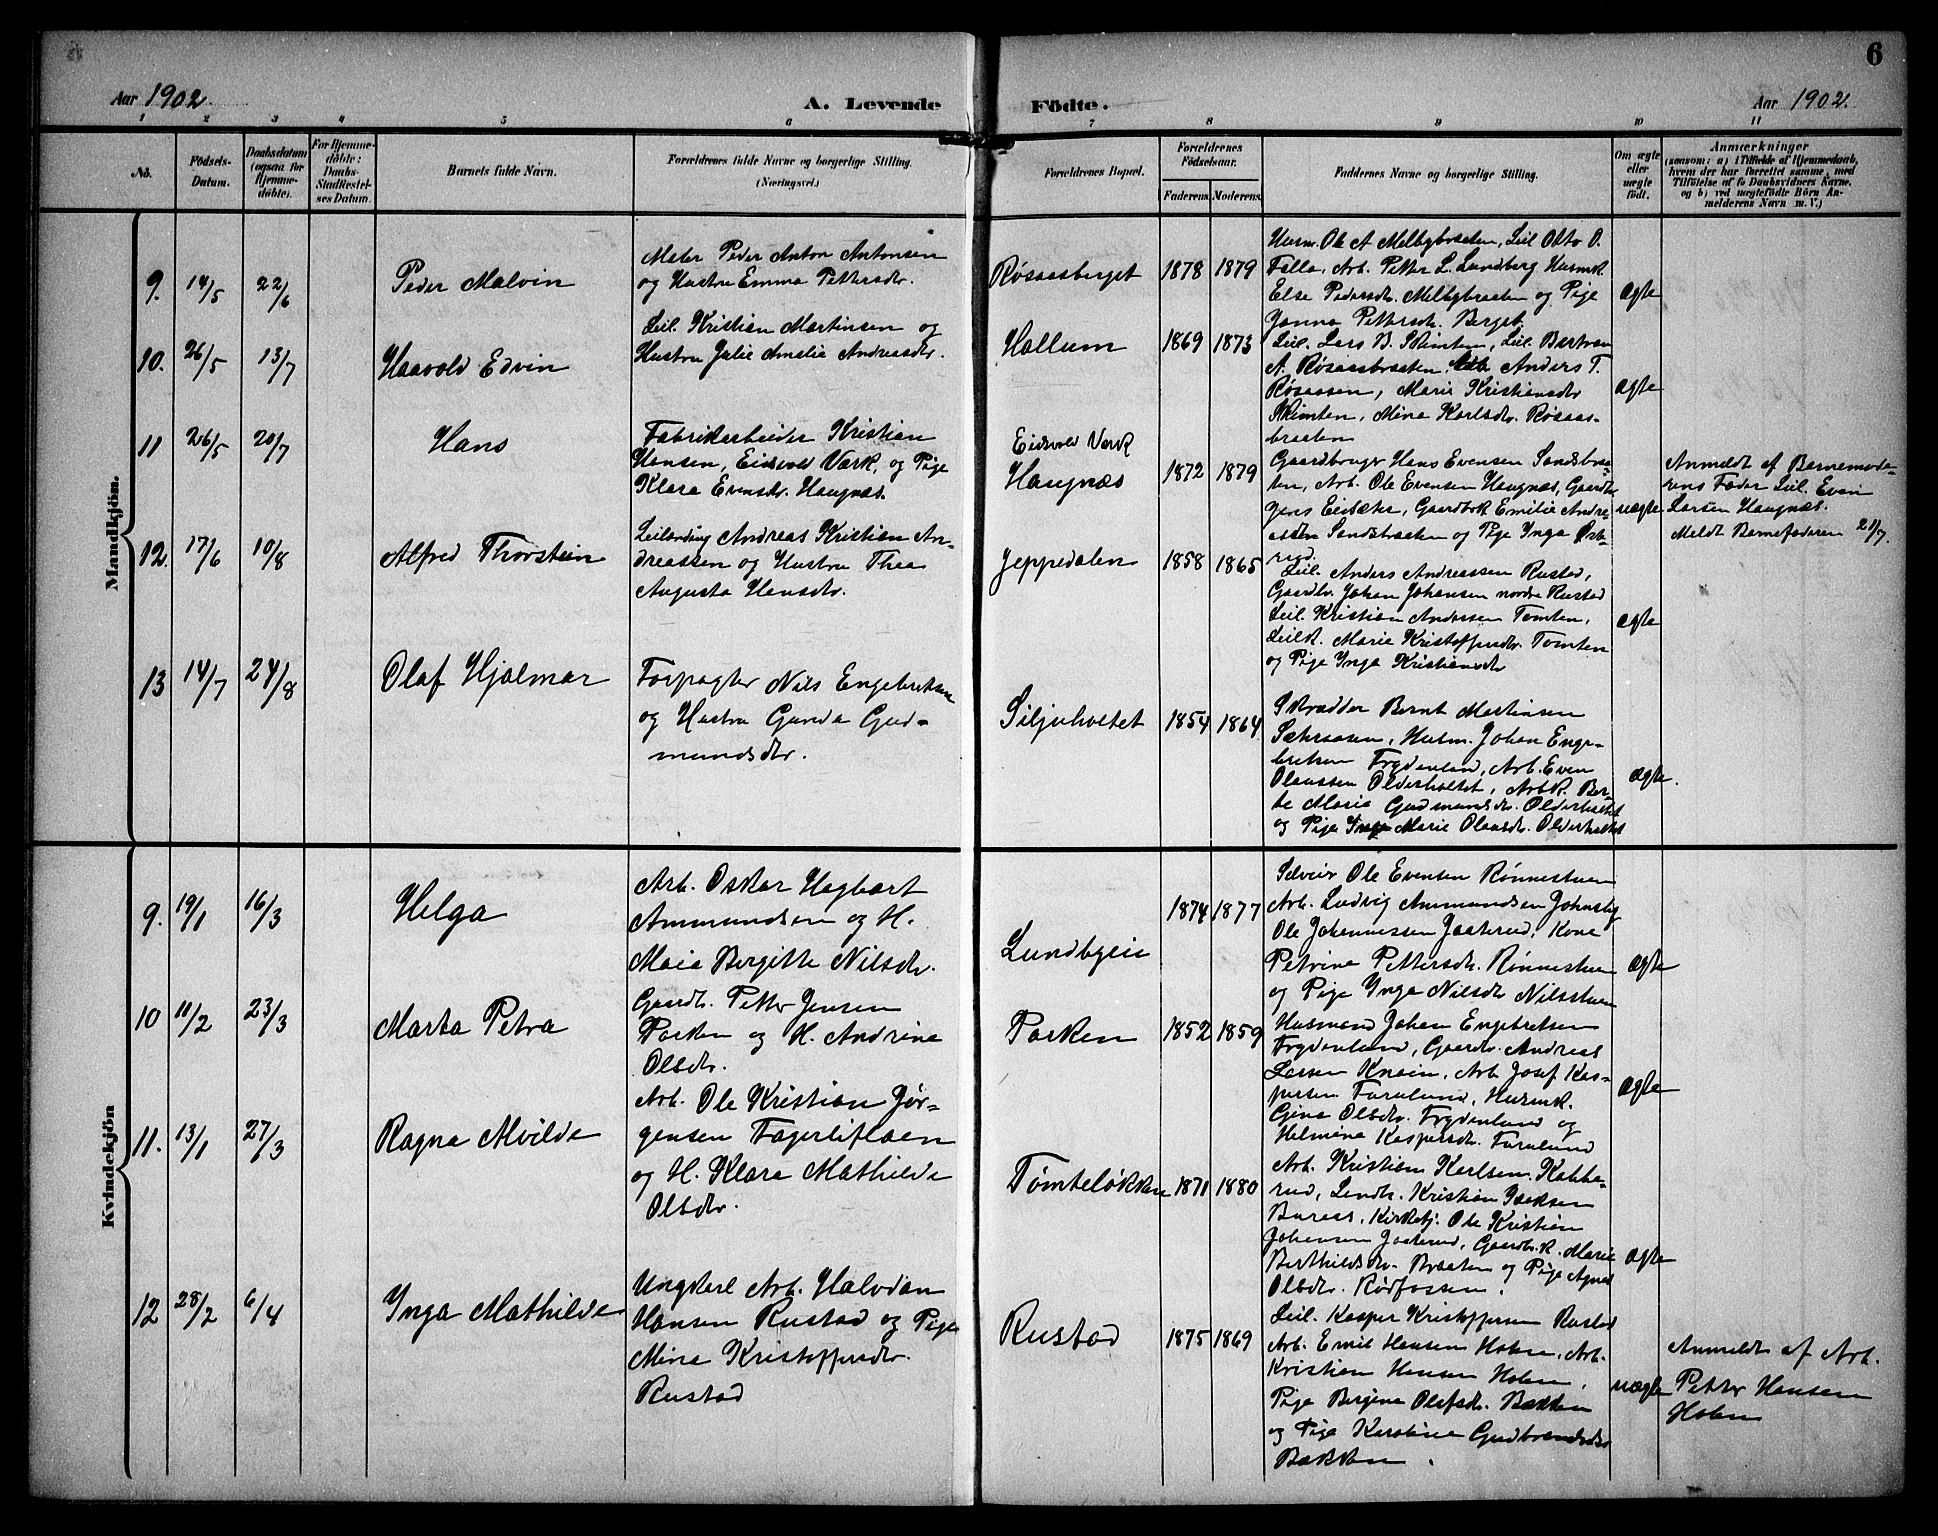 6
Aar 1902
A. Levende Födte.
Aar 1902.
1 2 3 4 5 6 7 8 9 10 11
No.
Födsels-Datum.
Daabsdatum (ogsaa for Hjemme-döbte).
For Hjemme-döbte: Daabs-Stadfæstel-ses Datum.
Barnets fulde Navn.
Forældrenes fulde Navne og borgerlige Stilling. (Næringsvei.)
Forældrenes Bopæl.
Forældrenes Födselsaar.
Faderens. Moderens.
Faddernes Navne og borgerlige Stilling.
Om ægte eller uægte født.
Anmærkninger
(saasom: a) i Tilfælde af Hjemmedaab,
hvem der har forrettet samme, med
Tilföielse af to Daabsvidners Navne,
og b) ved uægtefödte Börn An-
melderens Navn m. V.)
Mandkjön.
9. 14/5 22/6 Peder Malvin
Maler Peder Anton Antonsen
og Hustru Emma Pettersdtr.
Røsaasberget 1878 1879
Husm. Ole A Melbybraaten, Leil Otto O.
Falla, Arb. Petter L. Lundberg Husmk.
Else Pedersdtr. Melbybraaten og Pige
Janna Pettersdtr. Berget.
ægte
10. 26/5 13/7 Haavald Edvin
Leil. Kristian Martinsen og
Hustru Julie Amalie Andreasdtr.
Hallum 1869 1873
Leil. Lars B. Skimten, Leil. Bertran
A. Røsaasbraaten, Anders T.
Røsaasen, Marie Kristiansdtr
Skimten, Mina Karlsdtr. Røsaas-
braaten
ægte
11 26/5 20/7 Hans
Fabrikarbeider Kristian
Hansen, Eidsvold Værk, og Pige
Klara Evensdtr. Haugnæs.
Eidsvold Værk
Haugnæs 1872 1879
Gaardbruger Hans Evensen Sandsbraa-
ten, Arb. Ole Evensen Haugnæs, Gaardbr.
Jens Eisbakke, Gaardbrk Emilie Andre-
asdtr Sandsbraaten og Pige Inga
uægte
Anmeldt af Barnemode-
rens Fader Leil. Even
Larsen Haugnæs.
Meldt Barnefaderen 21/7.
12. 17/6 10/8 Alfred Thorstein
Leilænding Andreas Kristian An-
dreassen og Hustru Thea
Augusta Hansdtr.
Jeppedalen 1858 1865
Leil. Anders Andreassen Rustad,
Gaardbr. Johan Johansen nordre Rustad
Leil. Kristian Andersen Tomten,
Leilk. Marie Kristoffersdtr. Tomten
og Pige Inga Kristiansdtr
ægte
13 14/7 24/8 Olaf Hjalmar
Forpagter Nils Engebretsen
og Hustru Gunda Gud-
mundsdtr.
Siljuholtet 1854 1864
Skrædder Bernt Martinsen
Sætraasen, Husm. Johan Enge-
bretsen Frydenlund, Arb. Even
Olaussen Olderholtet, Arbk. Ber-
te Maria Gudmundsdtr. Olderholtet
og Pige Inga Marie Olausdtr. Olderholtet
ægte.
Kvindekjön
9. 19/1 16/3 Helga
Arb. Oskar Hagbart
Ammundsen og H.
Maia Bergitte Nilsdtr.
Lundbyeie 1874 1877
Selveier Ole Evensen Rønnestuen
Arb. Ludvig Ammundsen
Ole Johannessen Jaaterud, Kone
Petrine Pettersdtr. Rønnestuen
og Pige Inga Nilsdtr Nilsstuen
ægte
10 11/2 23/3 Marta Petra
Gaardbr. Petter Jensen
Parken og H. Andrine
Olsdtr.
Parken 1852 1859
Husmand Johan Engebretsen
Frydenlund, Gaardbr. Andreas
Larsen Knain, Arb Josef Kas-
persen Furulund, Husmk.
Gina Olsdtr. Frydenlund og
Helmine Kaspersdtr. Furulund
ægte
11. 13/1 27/3 Ragna Mvilde
Arb. Ole Kristian Jør-
gensen Fagerliflaen
og H. Klara Mathilde
Olsdtr.
Tømteløkken 1871 1880
Arb. Kristian Karlsen Kabbe-
rud, Landh. Kristian Isaksen
Buraas, Kirketj. Ole Kristian
Johansen Jaaterud, Gaardbr.k. Marie
Berthilsdtr. Braaten og Pige Agnes
Olsdtr. Rødfossen.
ægte
12 28/2 6/4 Inga Mathilde
Ungkarl Arb. Halvdan
Hansen Rustad og Pige
Mina Kristoffersdtr.
Rustad
Rustad 1875 1869
Leil. Kasper Kristoffersen Rustad
Arb. Emil Hansen Holen, Arb.
Kristian Hansen Holen,
Pige Bergine Olafsdtr. Bakken
og Pige Karoline Gudbrandsdtr
Bakken.
uægte
Anmeldt af Arb.
Petter Hansen
Holen